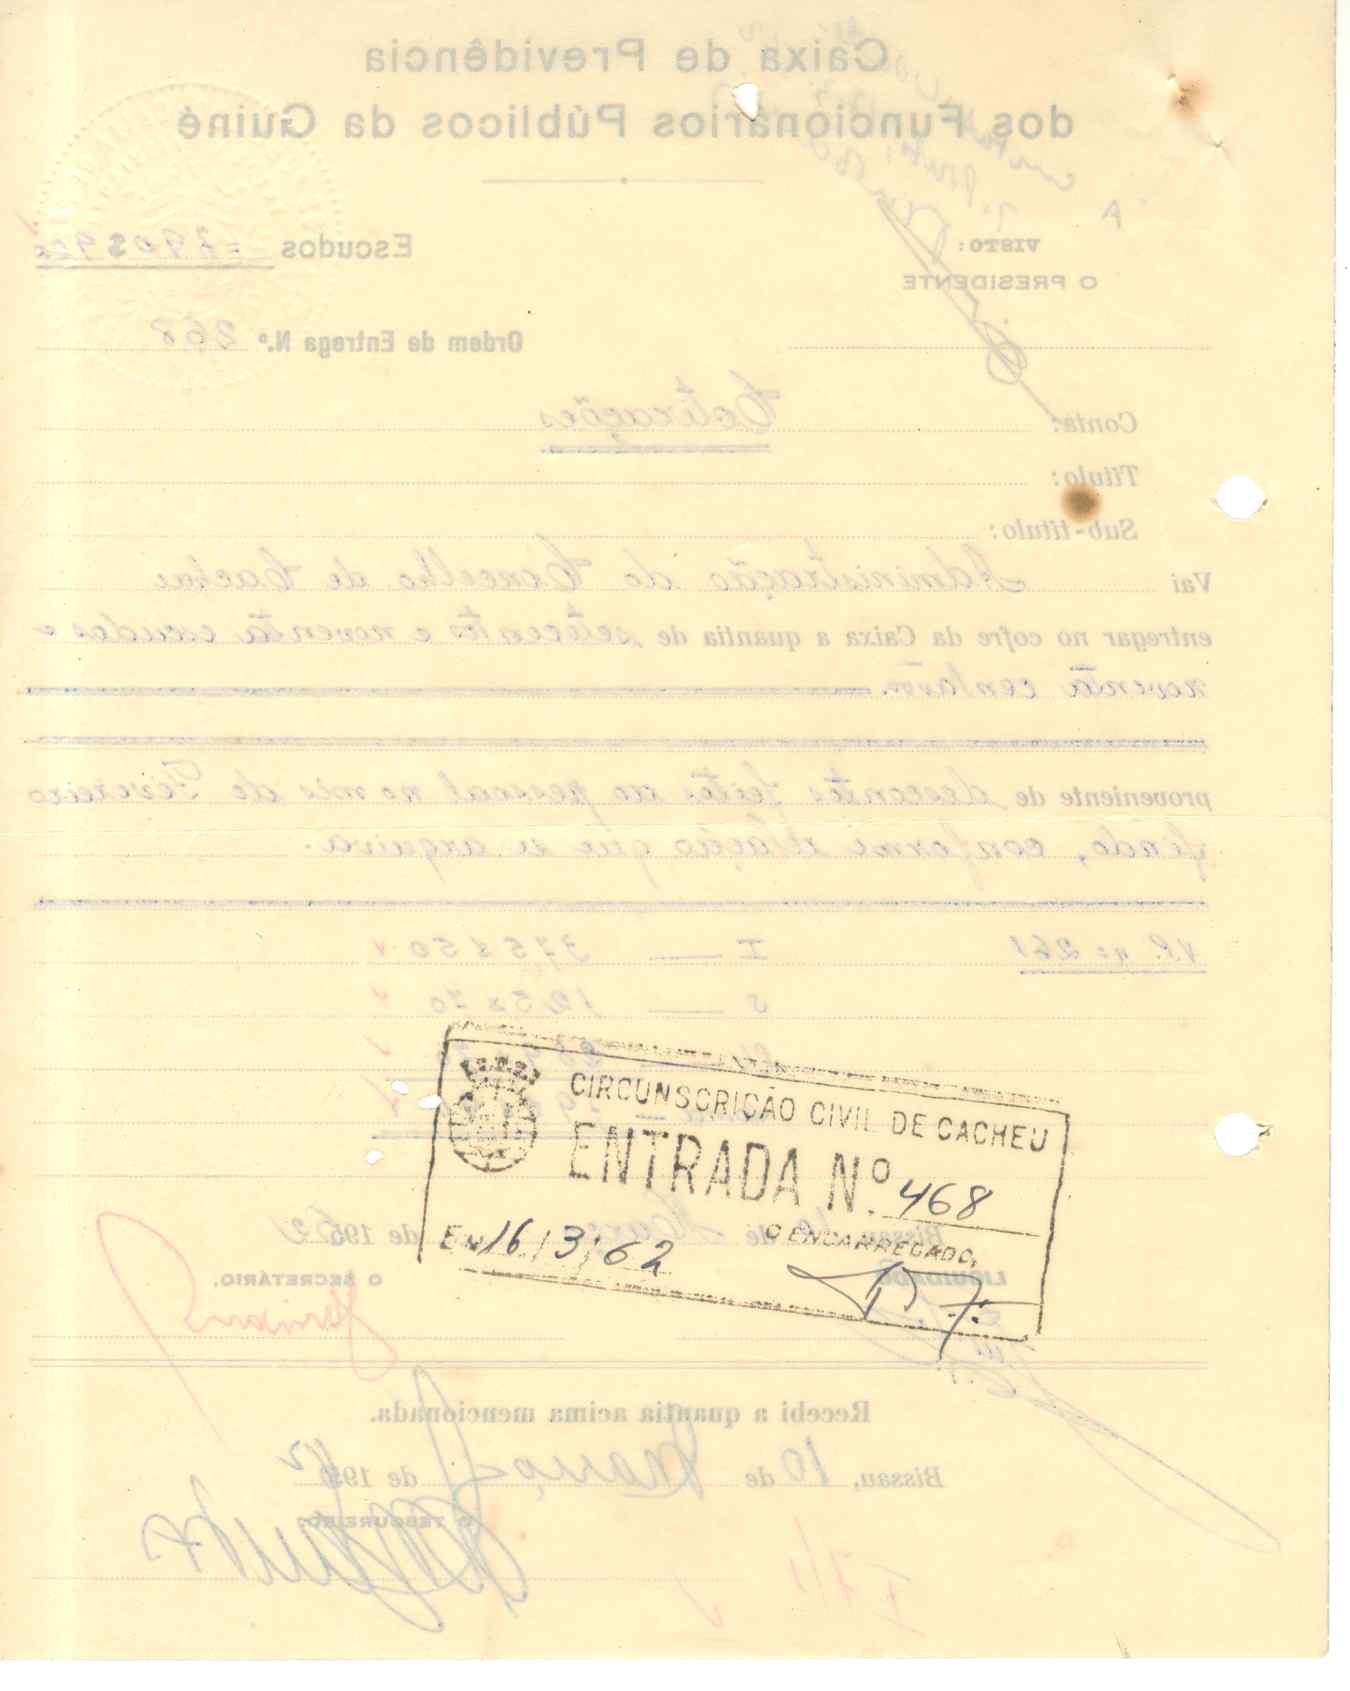 Caixa de Previdência
dos Funcionários Públicos da Guiné
VISTO:
O PRESIDENTE
Escudos =790$90=
Ordem de Entrega N.º 268
Conta: Cotizações
Título:
Sub-título:
Vai Administração do Concelho de Cacheu
entregar no cofre da Caixa a quantia de setecentos e noventa escudos e
noventa centavos.
proveniente de descontos feitos ao pessoal no mês de Fevereiro
findo, conforme relação que se arquiva.
V.P. nº 261 I — 375$50
S — 125$70
CIRCUNSCRIÇÃO CIVIL DE CACHEU
ENTRADA Nº. 468
EM 16/3/62
O ENCARREGADO,
Bissau, de Março de 1962
LIQUIDADO
O SECRETÁRIO,
Recebi a quantia acima mencionada.
Bissau, 10 de Março de 1962
O TESOUREIRO,